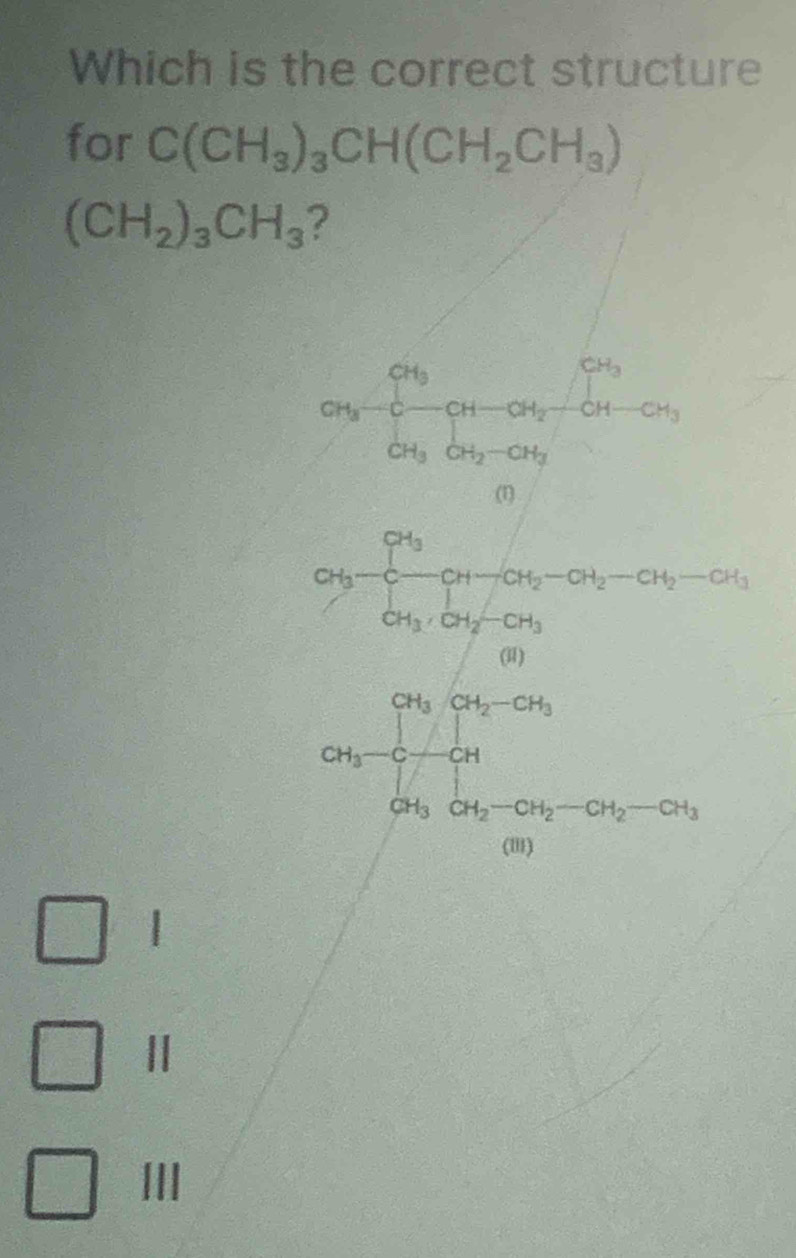 Which is the correct structure
for C(CH₃)₃CH(CH₂CH₃)
(CH₂)₃CH₃?
CH₃ CH₃
CH₃—C—CH—CH₂—CH—CH₃
CH₃ CH₂—CH₃
(I)
CH₃
CH₃—C—CH—CH₂—CH₂—CH₂—CH₃
CH₃ CH₂—CH₃
(II)
CH₃ CH₂—CH₃
CH₃—C—CH
CH₃ CH₂—CH₂—CH₂—CH₃
(III)
I
II
III